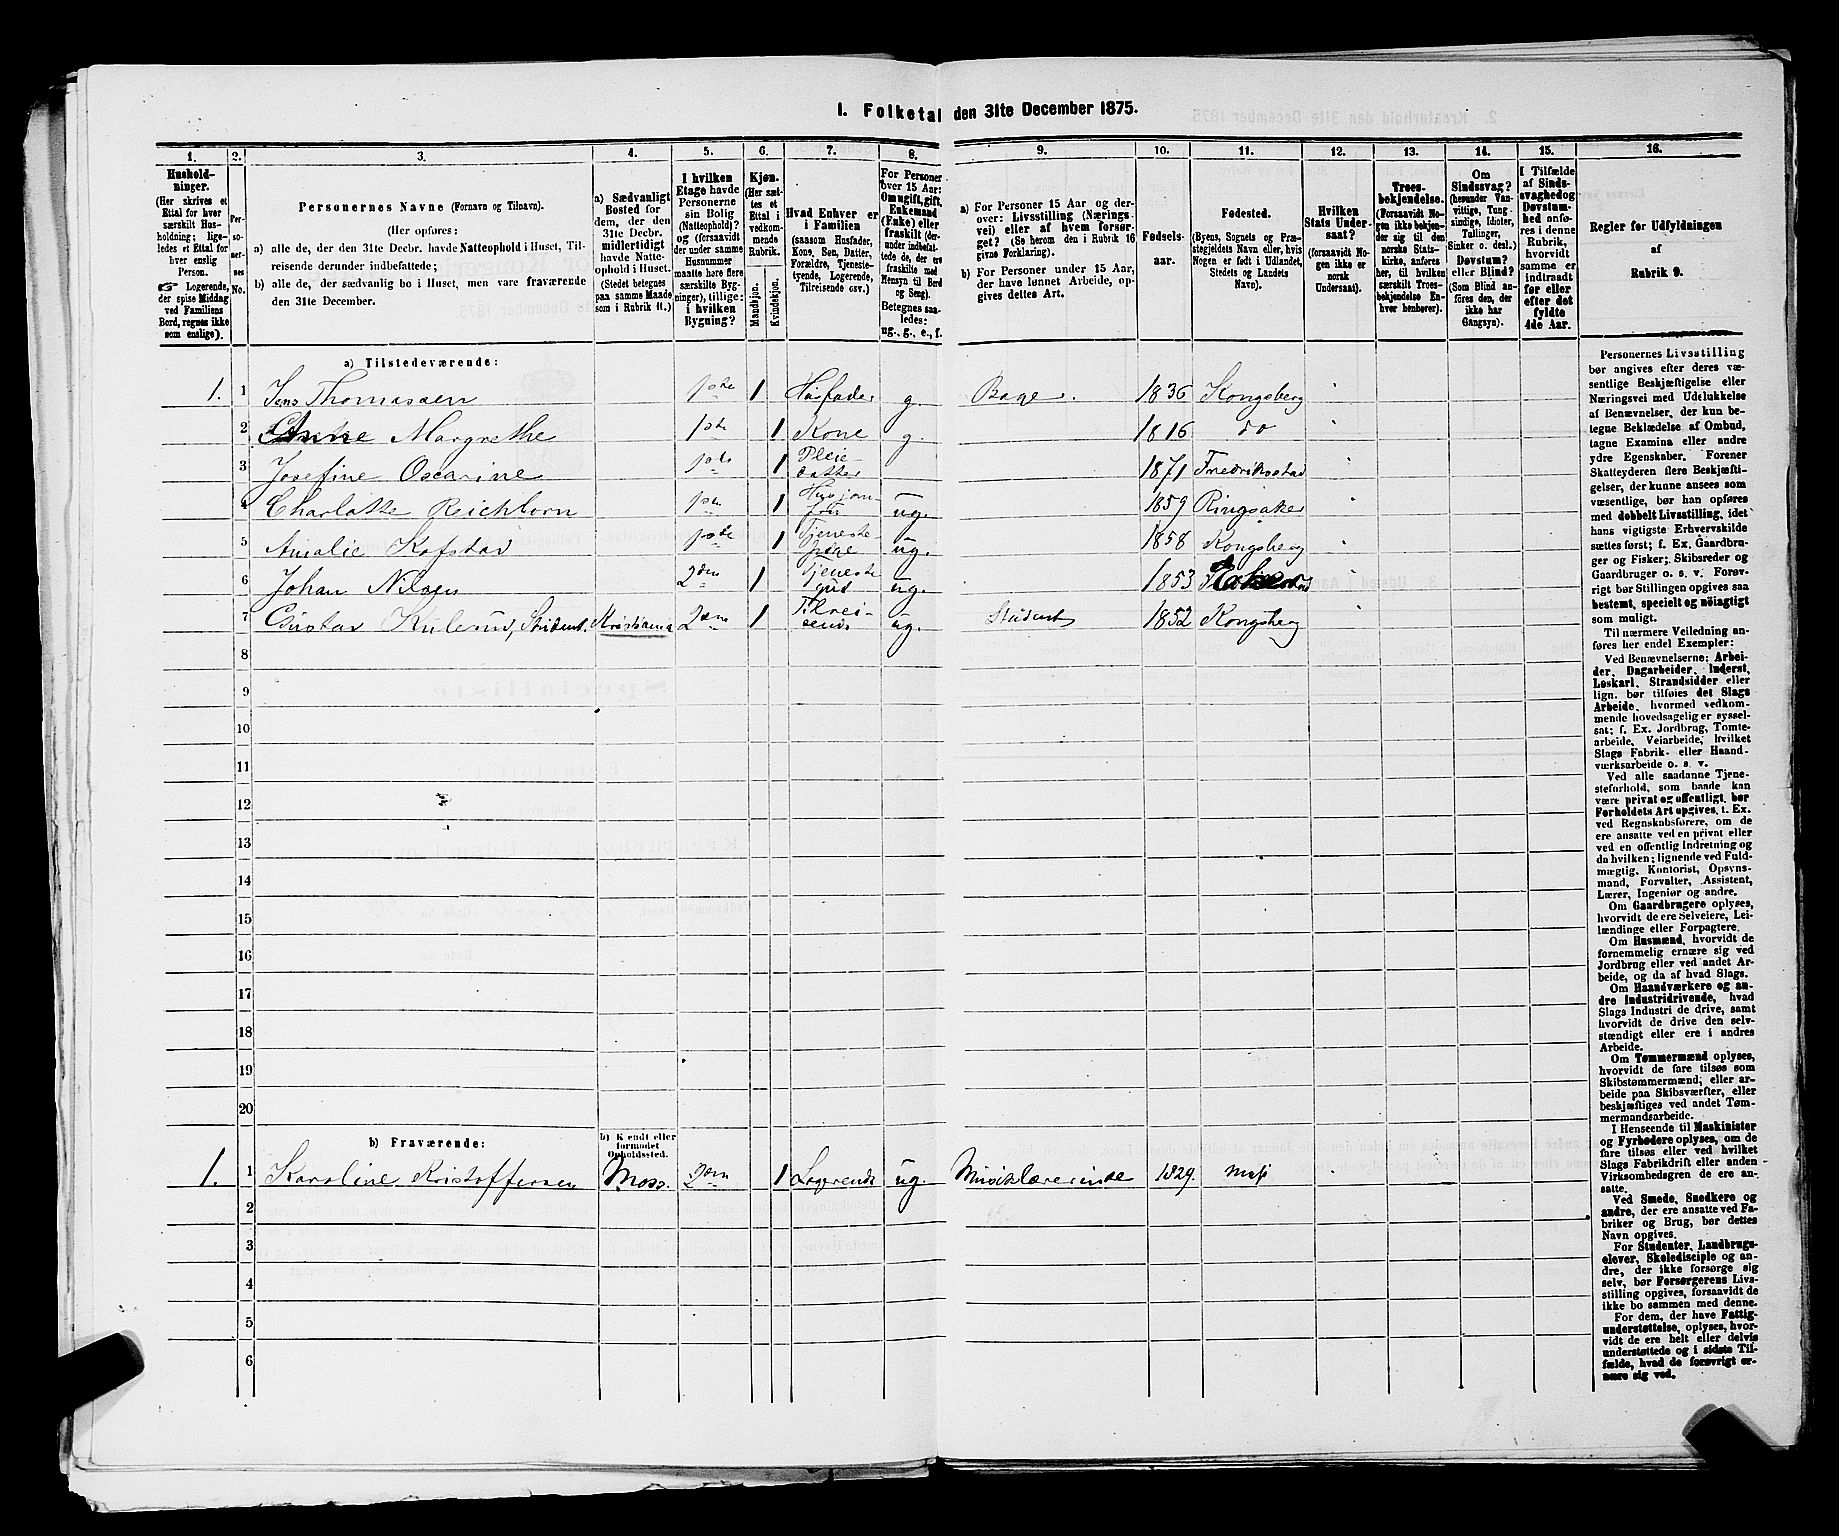 1. Folketal den 31te December 1875.
1. 2. 3. 4. 5. 6. 7. 8. 9. 10. 11. 12. 13. 14. 15. 16.
Hushold-
ninger.
(Her skrives et
Ettal for hver
særskilt Hus-
holdning; lige-
ledes et Ettal
for hver enslig
Person.
☞ Logerende,
der spise Middag
ved Familiens
Bord, regnes ikke
som enslige).
Per-
so-
ner-
nes
No.
Personernes Navne (Fornavn og Tilnavn).
(Her opføres:
a) alle de, der den 31te Decbr. havde Natteophold i Huset, Til-
reisende derunder indbefattede;
b) alle de, der sædvanlig bo i Huset, men vare fraværende
den 31te December.
a) Sædvanligt
Bosted for
dem, der den
31te Decbr.
midlertidigt
havde Natte-
ophold i Huset.
(Stedet betegnes
paa samme Maade
som i Rubrik 11.)
I hvilken
Etage havde
Personerne
sin Bolig
(Natteophold)?
og (forsaavidt
der under samme
Husnummer
maatte høre flere
særskilte Byg-
ninger), tillige:
i hvilken
Bygning?
Kjøn.
(Her sæt-
tes et
Ettal i
vedkom-
mende
Rubrik.
Mandkjøn.
Kvindekjøn.
Hvad Enhver er
i Familien
(saasom Husfader,
Kone, Søn, Datter,
Forældre, Tjeneste-
tyende, Logerende,
Tilreisende osv.)
For Personer
over 15 Aar:
Om ugift, gift,
Enkemand
(Enke) eller
fraskilt (der-
under indbefat-
tede de, der ere
fraskilte med
Hensyn til Bord
og Seng).
Betegnes saa-
ledes:
ug., g., e., f.
a) For Personer 15 Aar og der-
over: Livsstilling (Nærings-
vei) eller af hvem forsør-
get? (Se herom den i Rubrik 16
givne Forklaring).
b) For Personer under 15 Aar,
der have lønnet Arbeide, op-
gives dettes Art.
Fødsels-
aar.
Fødested.
(Byens, Sognets og Præ-
stegjeldets Navn eller, hvis
Nogen er født i Udlandet,
Stedets og Landets
Navn).
Hvilken
Stats Under-
saat?
(forsaavidt No-
gen ikke er
norsk
Undersaat).
Troes-
bekjendelse.
(Forsaavidt No-
gen ikke bekjen-
der sig til den
norske Stats-
kirke, anføres
her, til hvilken
særskilt Troes-
bekjendelse En-
hver henhører).
Om
Sindssvag?
(herunder Van-
vittige, Tung-
sindige, Idioter,
Tullinger,
Sinker o. desl.)
Døvstum?
eller Blind?
(Som Blind an-
føres den, der
ikke har
Gangsyn).
I Tilfælde
af Sinds-
svaghed og
Døvstum-
hed anfø-
res i denne
Rubrik,
hvorvidt
samme er
indtraadt
før eller
efter det
fyldte
4de Aar.
Regler for Udfyldningen
af
Rubrik 9.
a) Tilstedeværende:
1. 1 Jens Thomassen 1ste 1 Husfader g. Bager. 1836 Kongsberg
2 Anne Margrethe 1ste 1 Kone g. 1816 do
3 Josefine Oscarine 1ste 1 Pleie-datter 1871 Fredriksstad
4 Charlotte Reichborn 1ste 1 ug. 1859 Ringsaker
5 Amalie Kofstad 1ste 1 Tjeneste pige ug. 1858 Kongsberg
6 Johan Nilsen 2den 1 Tjeneste gut ug. 1853
7 Gustav Kulerud, Student. Kristiania 2den 1 Tilrei-sende ug. Student 1852 Kongsberg
8
9
10
11
12
13
14
15
16
17
18
19
20
b) Fraværende:
b) Kjendt eller
formodet
Opholdssted.
1. 1 Karoline Kristoffersen Moss. 2den 1 Logerende ug. Musiklærerinde 1829. Moss
2
3
4
5
6
Personernes Livsstilling
bør angives efter deres væ-
sentlige Beskjæftigelse eller
Næringsvei med Udelukkelse
af Benævnelser, der kun be-
tegne Beklædelse af Ombud,
tagne Examina eller andre
ydre Egenskaber. Forener
Skatteyderen flere Beskjæfti-
gelser, der kunne ansees som
væsentlige, bør han opføres
med dobbelt Livsstilling, idet
hans vigtigste Erhvervskilde
sættes først; f. Ex. Gaardbru-
ger og Fisker; Skibsreder og
Gaardbruger o. s. v. Forøv-
rigt bør Stillingen opgives saa
bestemt, specielt og nøiagtigt
som muligt.
Til nærmere Veiledning an-
føres her endel Exempler:
Ved Benævnelserne: Arbei-
der, Dagarbeider, Inderst,
Løskarl, Strandsidder eller
lign. bør tilføies det Slags
Arbeide, hvormed vedkom-
mende hovedsagelig er syssel-
sat; f. Ex. Jordbrug, Tomte-
arbeide, Veiarbeide, hvilket
Slags Fabrik- eller Haand-
værksarbeide o. s. v.
Ved alle saadanne Tjene-
steforhold, som baade kan
være privat og offentligt, bør
Forholdets Art opgives, t. Ex.
ved Regnskabsførere, om de
ere ansatte ved en privat eller
ved en offentlig Indretning og
da hvilken; lignende ved Fuld-
mægtig, Kontorist, Opsyns-
mand, Forvalter, Assistent,
Lærer, Ingeniør og andre.
Om Gaardbrugere oplyses,
hvorvidt de ere Selveiere, Lei-
lændinge eller Forpagtere.
Om Husmænd, hvorvidt de
fornemmelig ernære sig ved
Jordbrug eller ved andet Ar-
beide, og da af hvad Slags.
Om Haandværkere og an-
dre Industridrivende, hvad
Slags Industri de drive, samt
hvorvidt de drive den selv-
stændigt eller ere i andres
Arbeide.
Om Tømmermænd oplyses,
hvorvidt de fare tilsøs som
Skibstømmermænd, eller ar-
beide paa Skibsværfter, eller
beskjæftiges ved andet Tøm-
mermandsarbeide.
I Henseende til Maskinister
og Fyrbødere oplyses, om de
fare tilsøs eller ved hvilket
Slags Fabrikdrift eller anden
Virksomhedsgren de ere an-
satte.
Ved Smede, Snedkere og
andre, der ere ansatte ved Fa-
briker og Brug, bør dettes
Navn opgives.
For Studenter, Landbrugs-
elever, Skoledisciple og an-
dre, der ikke forsørge sig
selv, bør Forsørgerens Livs-
stilling opgives, forsaavidt de
ikke bo sammen med denne.
For dem, der have Fattig-
understøttelse, oplyses, hvor-
vidt de ere helt eller delvis
understøttede og i sidste Til-
fælde, hvad de forøvrigt er-
nære sig ved.